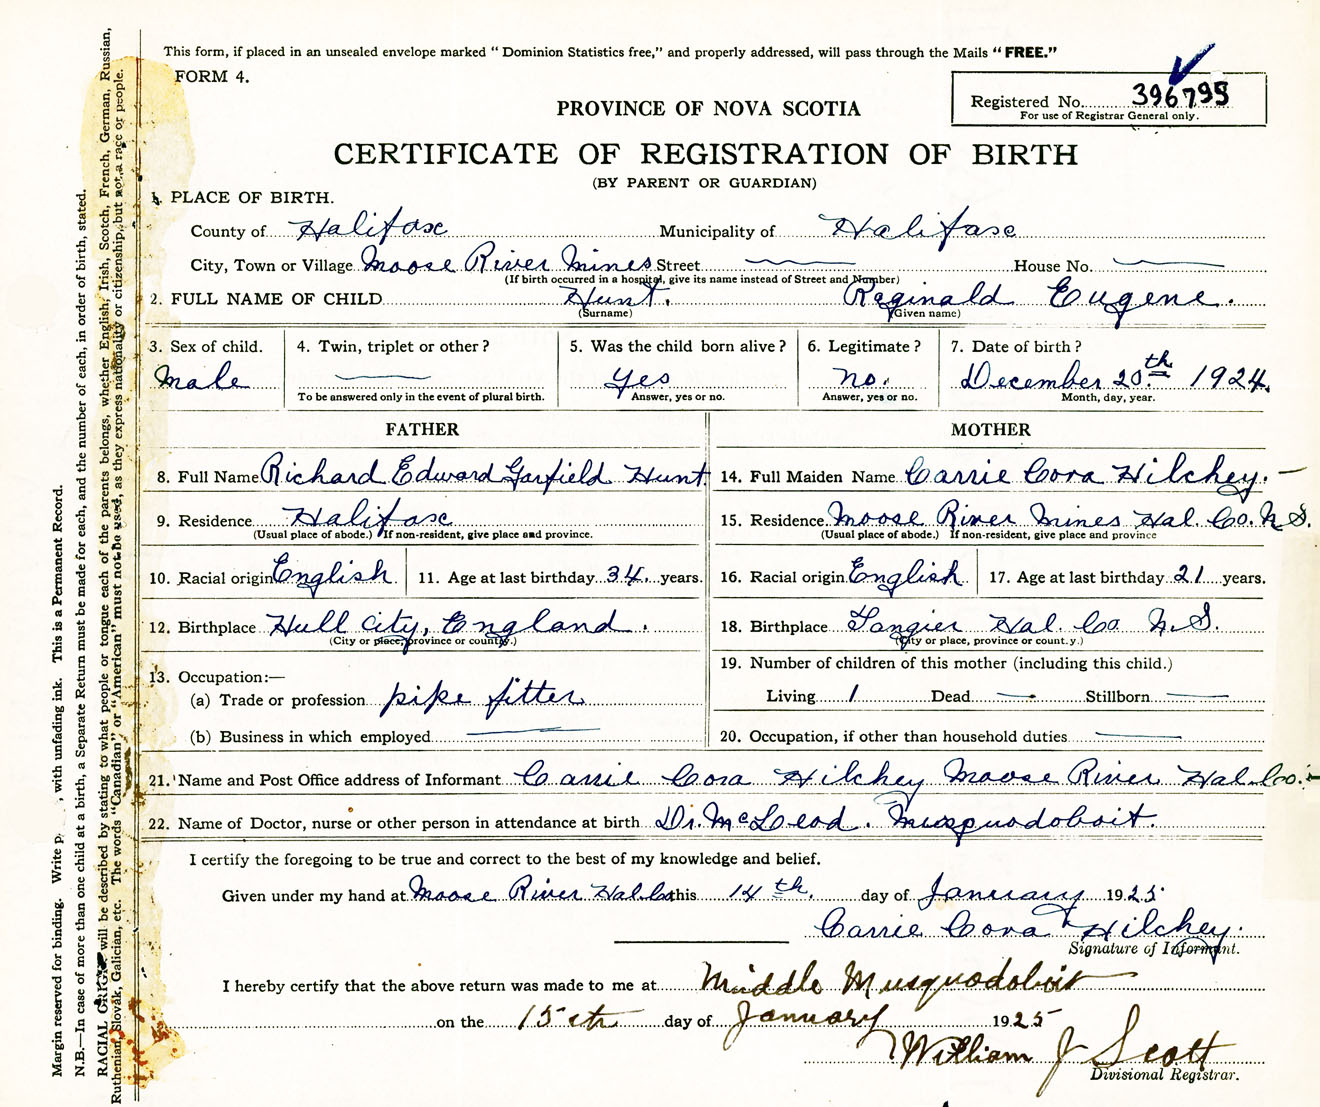 This form, if placed in an unsealed envelope marked "Dominion Statistics free," and properly addressed, will pass through the Mails "FREE."
FORM 4.
Registered No. 396795
For use of Registrar General only.
PROVINCE OF NOVA SCOTIA
CERTIFICATE OF REGISTRATION OF BIRTH
(BY PARENT OR GUARDIAN)
1. PLACE OF BIRTH.
County of Halifax Municipality of Halifax
City, Town or Village Moose River Mines Street — House No. —
(If birth occurred in a hospital, give its name instead of Street and Number)
2. FULL NAME OF CHILD Hunt. Reginald Eugene.
(Surname) (Given name)
3. Sex of child. 4. Twin, triplet or other? 5. Was the child born alive? 6. Legitimate? 7. Date of birth?
Male — Yes no. December 20th 1924.
To be answered only in the event of plural birth. Answer, yes or no. Answer, yes or no. Month, day, year.
FATHER MOTHER
8. Full Name Richard Edward Garfield Hunt 14. Full Maiden Name Carrie Cora Hilchey.—
9. Residence Halifax 15. Residence Moose River Mines Hal. Co. N.S.
(Usual place of abode.) If non-resident, give place and province. (Usual place of abode.) If non-resident, give place and province
10. Racial origin English 11. Age at last birthday 34 years. 16. Racial origin English 17. Age at last birthday 21 years.
12. Birthplace Hull City, England. 18. Birthplace Tangier Hal. Co N.S.
(City or place, province or county.) (City or place, province or county.)
13. Occupation:— 19. Number of children of this mother (including this child.)
(a) Trade or profession pipe fitter Living 1 Dead — Stillborn —
(b) Business in which employed — 20. Occupation, if other than household duties —
21. Name and Post Office address of Informant Carrie Cora Hilchey Moose River Hal. Co.
22. Name of Doctor, nurse or other person in attendance at birth Dr. McLeod. Musquodoboit.
I certify the foregoing to be true and correct to the best of my knowledge and belief.
Given under my hand at Moose River Hal Co this 14th. day of January 1925
Carrie Cora Hilchey.
Signature of Informant.
I hereby certify that the above return was made to me at Middle Musquodoboit
on the 15th day of January 1925
William J Scott
Divisional Registrar.
Margin reserved for binding. Write with unfading ink. This is a Permanent Record.
N.B.—In case of more than one child at a birth, a Separate Return must be made for each, and the number of each, in order of birth, stated.
RACIAL ORIGIN will be described by stating to what people or tongue each of the parents belongs, whether English, Irish, Scotch, French, German, Russian,
Ruthenian, Slovak, Galician, etc. The words "Canadian" or "American" must not be used, as they express nationality or citizenship, but not a race or people.